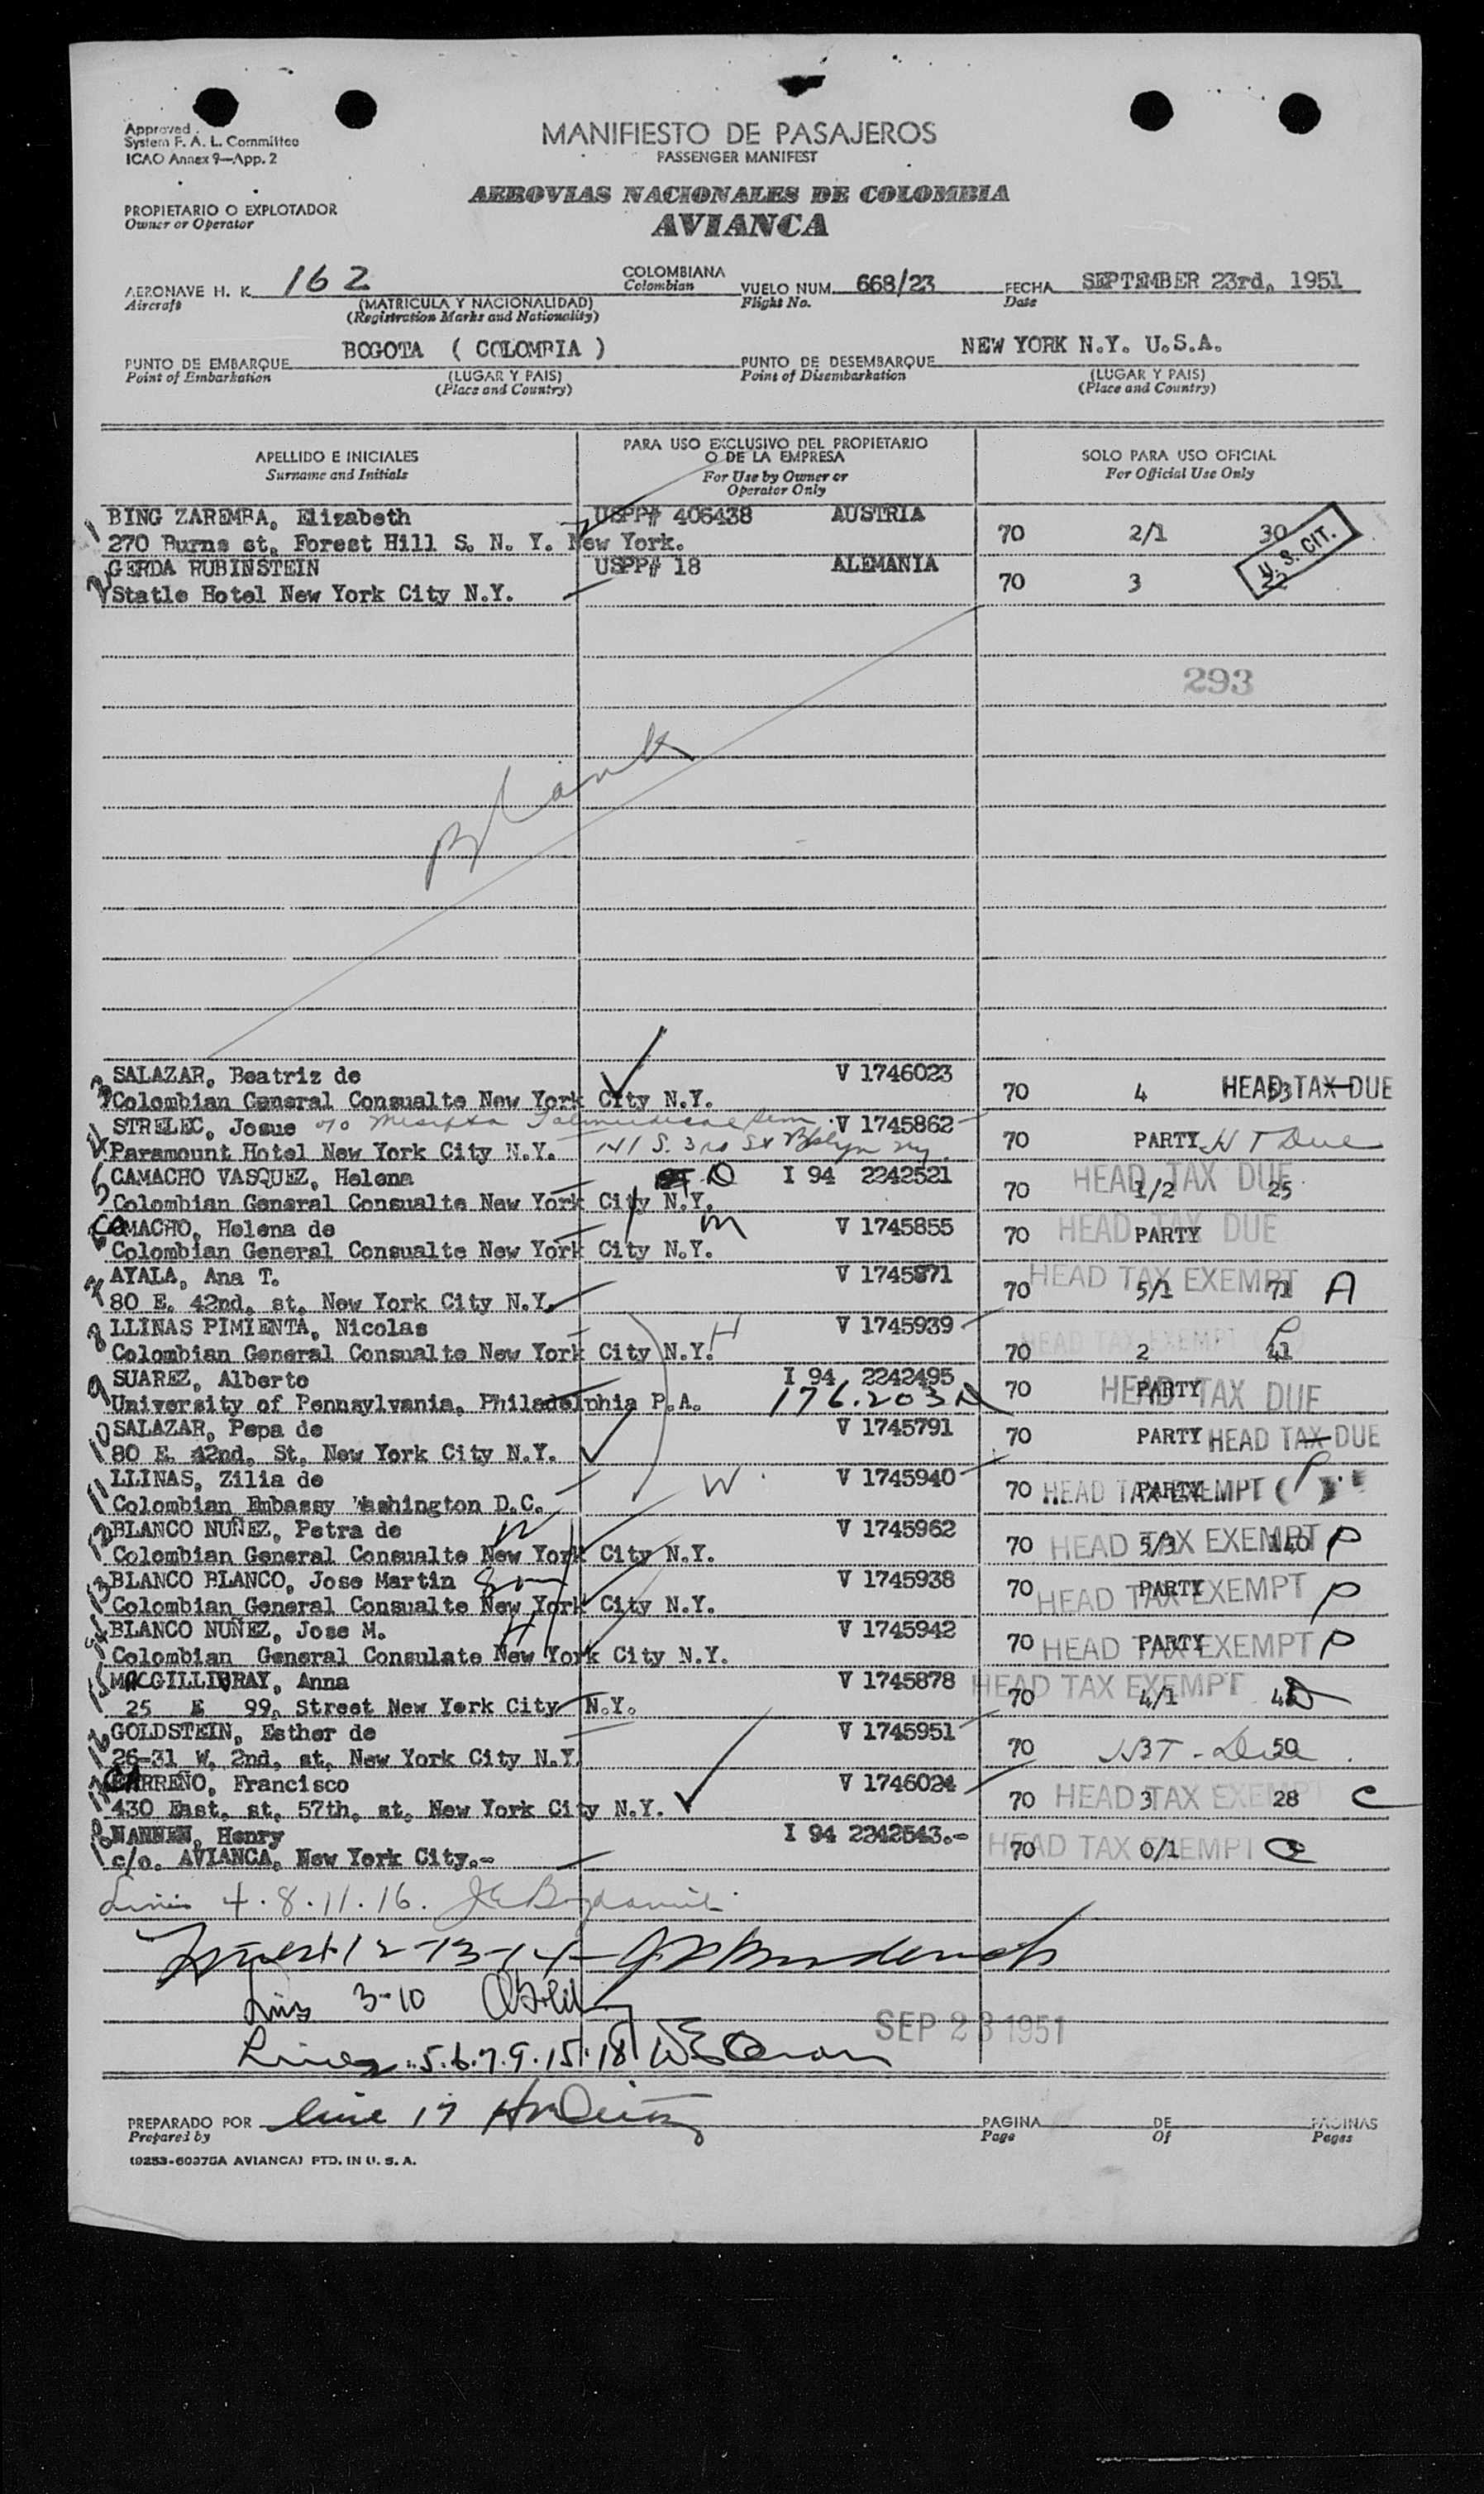 Approved
System F. A. L. Committee
ICAO Annex 9—App. 2
MANIFIESTO DE PASAJEROS
PASSENGER MANIFEST
AEROVIAS NACIONALES DE COLOMBIA
AVIANCA
PROPIETARIO O EXPLOTADOR
Owner or Operator
AERONAVE H. K. 162 COLOMBIANA VUELO NUM. 668/23 FECHA SEPTEMBER 23rd, 1951
Aircraft (MATRICULA Y NACIONALIDAD) Colombian Flight No. Date
(Registration Marks and Nationality)
PUNTO DE EMBARQUE BOGOTA ( COLOMBIA ) PUNTO DE DESEMBARQUE NEW YORK N.Y. U.S.A.
Point of Embarkation (LUGAR Y PAIS) Point of Disembarkation (LUGAR Y PAIS)
(Place and Country) (Place and Country)
APELLIDO E INICIALES PARA USO EXCLUSIVO DEL PROPIETARIO O DE LA EMPRESA SOLO PARA USO OFICIAL
Surname and Initials For Use by Owner or Operator Only For Official Use Only
1 BING ZAREMBA, Elizabeth USPP# 406438 AUSTRIA
270 Burns st, Forest Hill S. N. Y. New York. 70 2/1 30 U. S. CIT.
2 GERDA RUBINSTEIN USPP# 18 ALEMANIA
Statle Hotel New York City N.Y. 70 3 22
293
Blank
3 SALAZAR, Beatriz de V 1746023
Colombian General Consualte New York City N.Y. 70 4 53 HEAD TAX DUE
4 STRELEC, Josue c/o Mesifta Talmudical Sem V 1745862
Paramount Hotel New York City N.Y. 141 S. 3rd St Bklyn NY. 70 PARTY H T Due
5 CAMACHO VASQUEZ, Helena D I 94 2242521
Colombian General Consualte New York City N.Y. 70 1/2 25 HEAD TAX DUE
6 CAMACHO, Helena de M V 1745855
Colombian General Consualte New York City N.Y. 70 PARTY HEAD TAX DUE
7 AYALA, Ana T. V 1745871
80 E. 42nd, st, New York City N.Y. 70 5/1 71 HEAD TAX EXEMPT A
8 LLINAS PIMIENTA, Nicolas H V 1745939
Colombian General Consualte New York City N.Y. 70 2 41 HEAD TAX EXEMPT P
9 SUAREZ, Alberto I 94 2242495
University of Pennsylvania, Philadelphia P.A. 176.203 70 PARTY HEAD TAX DUE
10 SALAZAR, Pepa de V 1745791
80 E. 42nd, St, New York City N.Y. 70 PARTY HEAD TAX DUE
11 LLINAS, Zilia de W V 1745940
Colombian Embassy Washington D.C. 70 PARTY HEAD TAX EXEMPT ( P )
12 BLANCO NUÑEZ, Petra de W V 1745962
Colombian General Consualte New York City N.Y. 70 5/3 140 HEAD TAX EXEMPT P
13 BLANCO BLANCO, Jose Martin Son V 1745938
Colombian General Consualte New York City N.Y. 70 PARTY HEAD TAX EXEMPT P
14 BLANCO NUÑEZ, Jose M. H V 1745942
Colombian General Consulate New York City N.Y. 70 PARTY HEAD TAX EXEMPT P
15 MACGILLIVRAY, Anna V 1745878
25 E 99, Street New York City N.Y. 70 4/1 HEAD TAX EXEMPT
16 GOLDSTEIN, Esther de V 1745951
26-31 W, 2nd, st, New York City N.Y. 70 3 50 HT - Due
17 CARREÑO, Francisco V 1746024
430 East, st, 57th, st, New York City N.Y. 70 3 28 HEAD TAX EXEMPT C
18 NANNEN, Henry I 94 2242543.-
c/o. AVIANCA, New York City.- 70 0/1 HEAD TAX EXEMPT
Lines 4.8.11.16.
12-13-14
Lines 3-10
SEP 23 1951
Lines 5.6.7.9.15.18
PREPARADO POR line 17 PAGINA DE PAGINAS
Prepared by Page Of Pages
(9253-60375A AVIANCA) PTD. IN U. S. A.